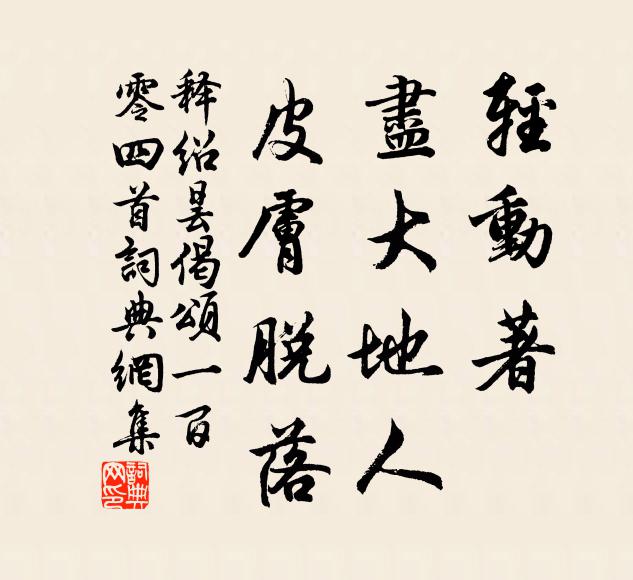 輕動著
盡大地人
皮膚脱落
释绍昙偈頌一百
零四首詞典網集
詞典网印